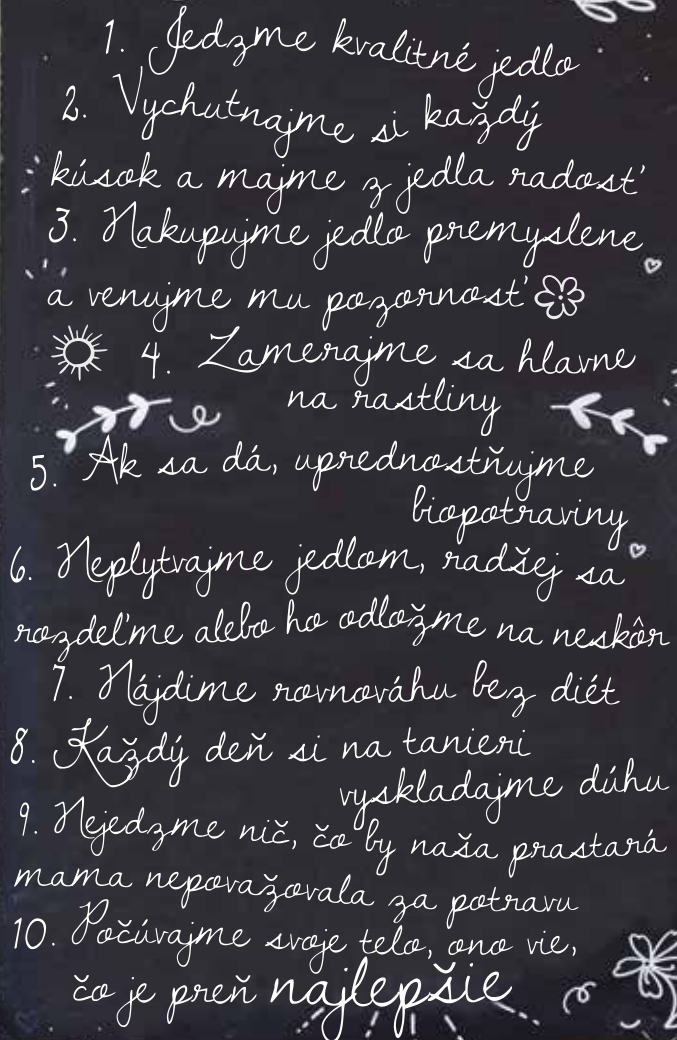 1. Jedzme kvalitné jedlo
2. Vychutnajme si každý
kúsok a majme z jedla radosť
3. Nakupujme jedlo premyslene
a venujme mu pozornosť
4. Zamerajme sa hlavne
na rastliny
5. Ak sa dá, uprednostňujme
biopotraviny
6. Neplytvajme jedlom, radšej sa
rozdeľme alebo ho odložme na neskôr
7. Nájdime rovnováhu bez diét
8. Každý deň si na tanieri
vyskladajme dúhu
9. Nejedzme nič, čo by naša prastará
mama nepovažovala za potravu
10. Počúvajme svoje telo, ono vie,
čo je preň najlepšie